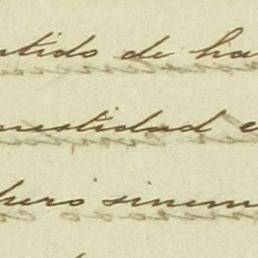 ntido de ha
nestidad e
hero sinem